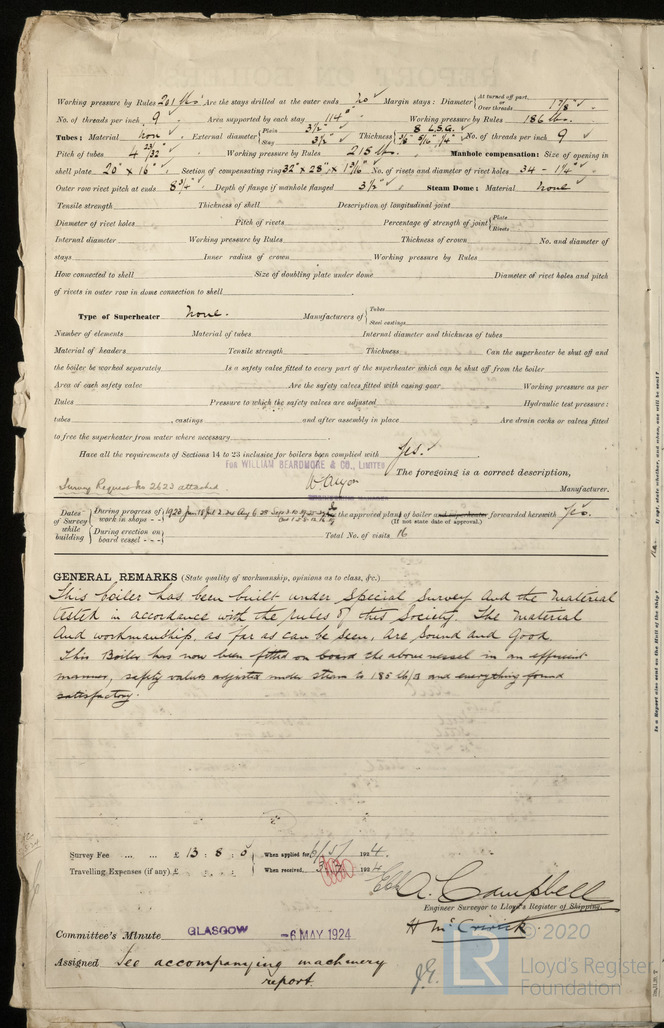 Working pressure by Rules 201 lbs Are the stays drilled at the outer ends no Margin stays: Diameter { At turned off part, or Over threads 1 7/8"
No. of threads per inch 9 Area supported by each stay 114" Working pressure by Rules 186 lbs.
Tubes: Material Iron External diameter { Plain 3 1/2" Stay 3 1/2" Thickness { 8 L.S.G. 3/8" 5/16" 1/4" No. of threads per inch 9
Pitch of tubes 4 23/32" Working pressure by Rules 215 lbs. Manhole compensation: Size of opening in
shell plate 20" x 16" Section of compensating ring 32" x 28" x 1 3/16" No. of rivets and diameter of rivet holes 34 - 1 1/4"
Outer row rivet pitch at ends 8 3/4" Depth of flange if manhole flanged 3 1/2" Steam Dome: Material None
Tensile strength Thickness of shell Description of longitudinal joint
Diameter of rivet holes Pitch of rivets Percentage of strength of joint { Plate Rivets
Internal diameter Working pressure by Rules Thickness of crown No. and diameter of
stays Inner radius of crown Working pressure by Rules
How connected to shell Size of doubling plate under dome Diameter of rivet holes and pitch
of rivets in outer row in dome connection to shell
Type of Superheater None. Manufacturers of { Tubes Steel castings
Number of elements Material of tubes Internal diameter and thickness of tubes
Material of headers Tensile strength Thickness Can the superheater be shut off and
the boiler be worked separately Is a safety valve fitted to every part of the superheater which can be shut off from the boiler
Area of each safety valve Are the safety valves fitted with easing gear Working pressure as per
Rules Pressure to which the safety valves are adjusted Hydraulic test pressure:
tubes , castings and after assembly in place Are drain cocks or valves fitted
to free the superheater from water where necessary
Have all the requirements of Sections 14 to 23 inclusive for boilers been complied with Yes.
FOR WILLIAM BEARDMORE & CO., LIMITED
The foregoing is a correct description,
Survey Request No 2623 attached
Manufacturer.
Dates of Survey while building { During progress of work in shops - - 1923 Is the approved plan of boiler and superheater forwarded herewith Yes.
(If not state date of approval.)
During erection on board vessel - - - Total No. of visits 16
GENERAL REMARKS (State quality of workmanship, opinions as to class, &c.)
This boiler has been built under Special Survey and the material
tested in accordance with the rules of this Society. The material
and workmanship, as far as can be seen, are sound and good.
This Boiler has now been fitted on board the above vessel in an efficient
manner, safety valves adjusted under steam to 185 lb/□ and everything found
satisfactory.
Survey Fee ... ... £ 13 : 8 : 5 When applied for, 6/5/ 1924.
Travelling Expenses (if any) £ : : When received, 192
A. Campbell
Engineer Surveyor to Lloyd's Register of Shipping.
Committee's Minute GLASGOW -6 MAY 1924
Assigned See accompanying machinery
report.
© 2020
LR
Lloyd's Register
Foundation